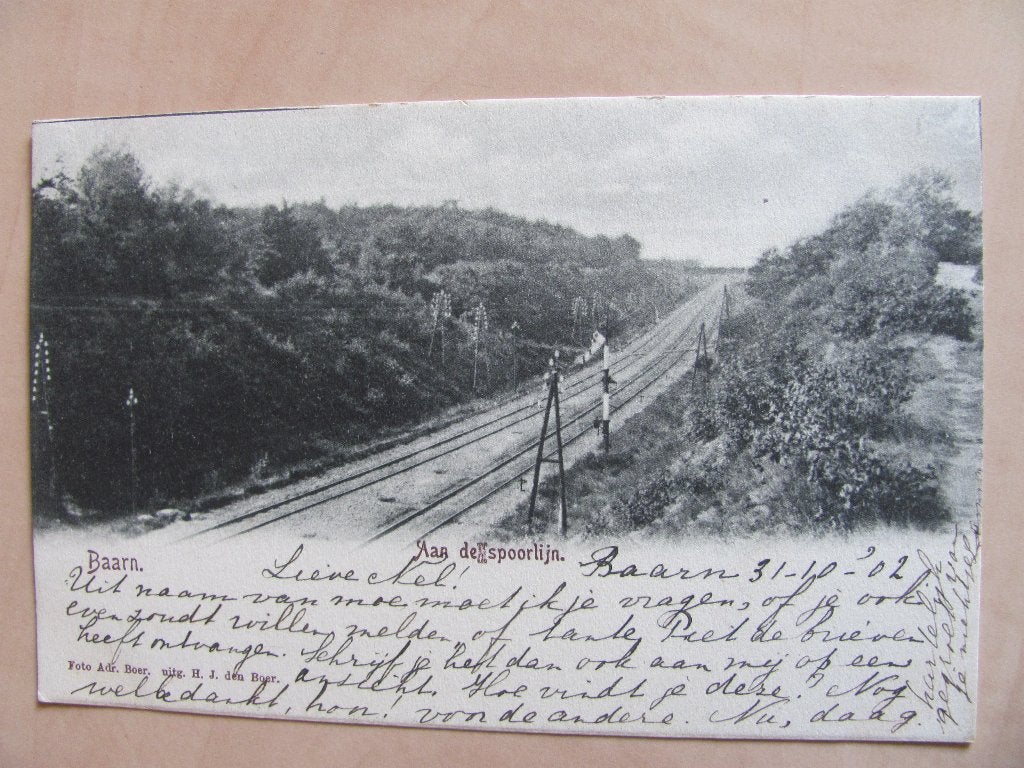 Baarn.
Aan de spoorlijn.
Lieve Nel! Baarn 31-10-'02
Uit naam van moe moet ik je vragen, of je ook
even zoudt willen melden, of tante Piet de brieven
heeft ontvangen. Schrijf je het dan ook aan mij op een
Foto Adr. Boer. uitg. H. J. den Boer.
ansicht. Hoe vindt je deze? Nog
wel bedankt, hon! voor de andere. Nu, daag.
hartelijk
gegroet van
je nichtje